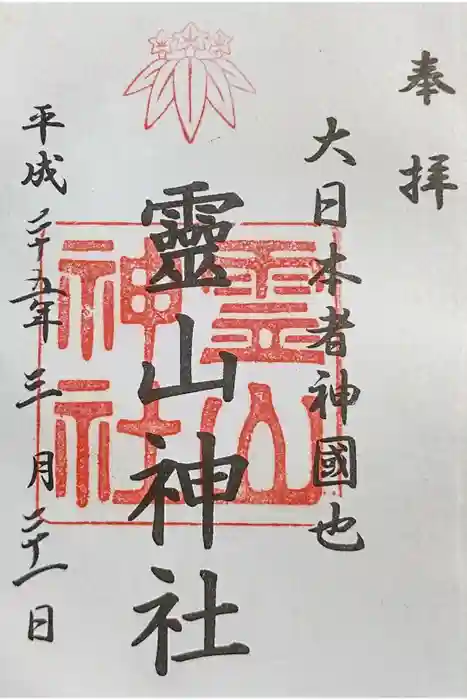 奉拝
大日本者神國也
靈山神社
霊山
神社
平成二十五年三月二十一日